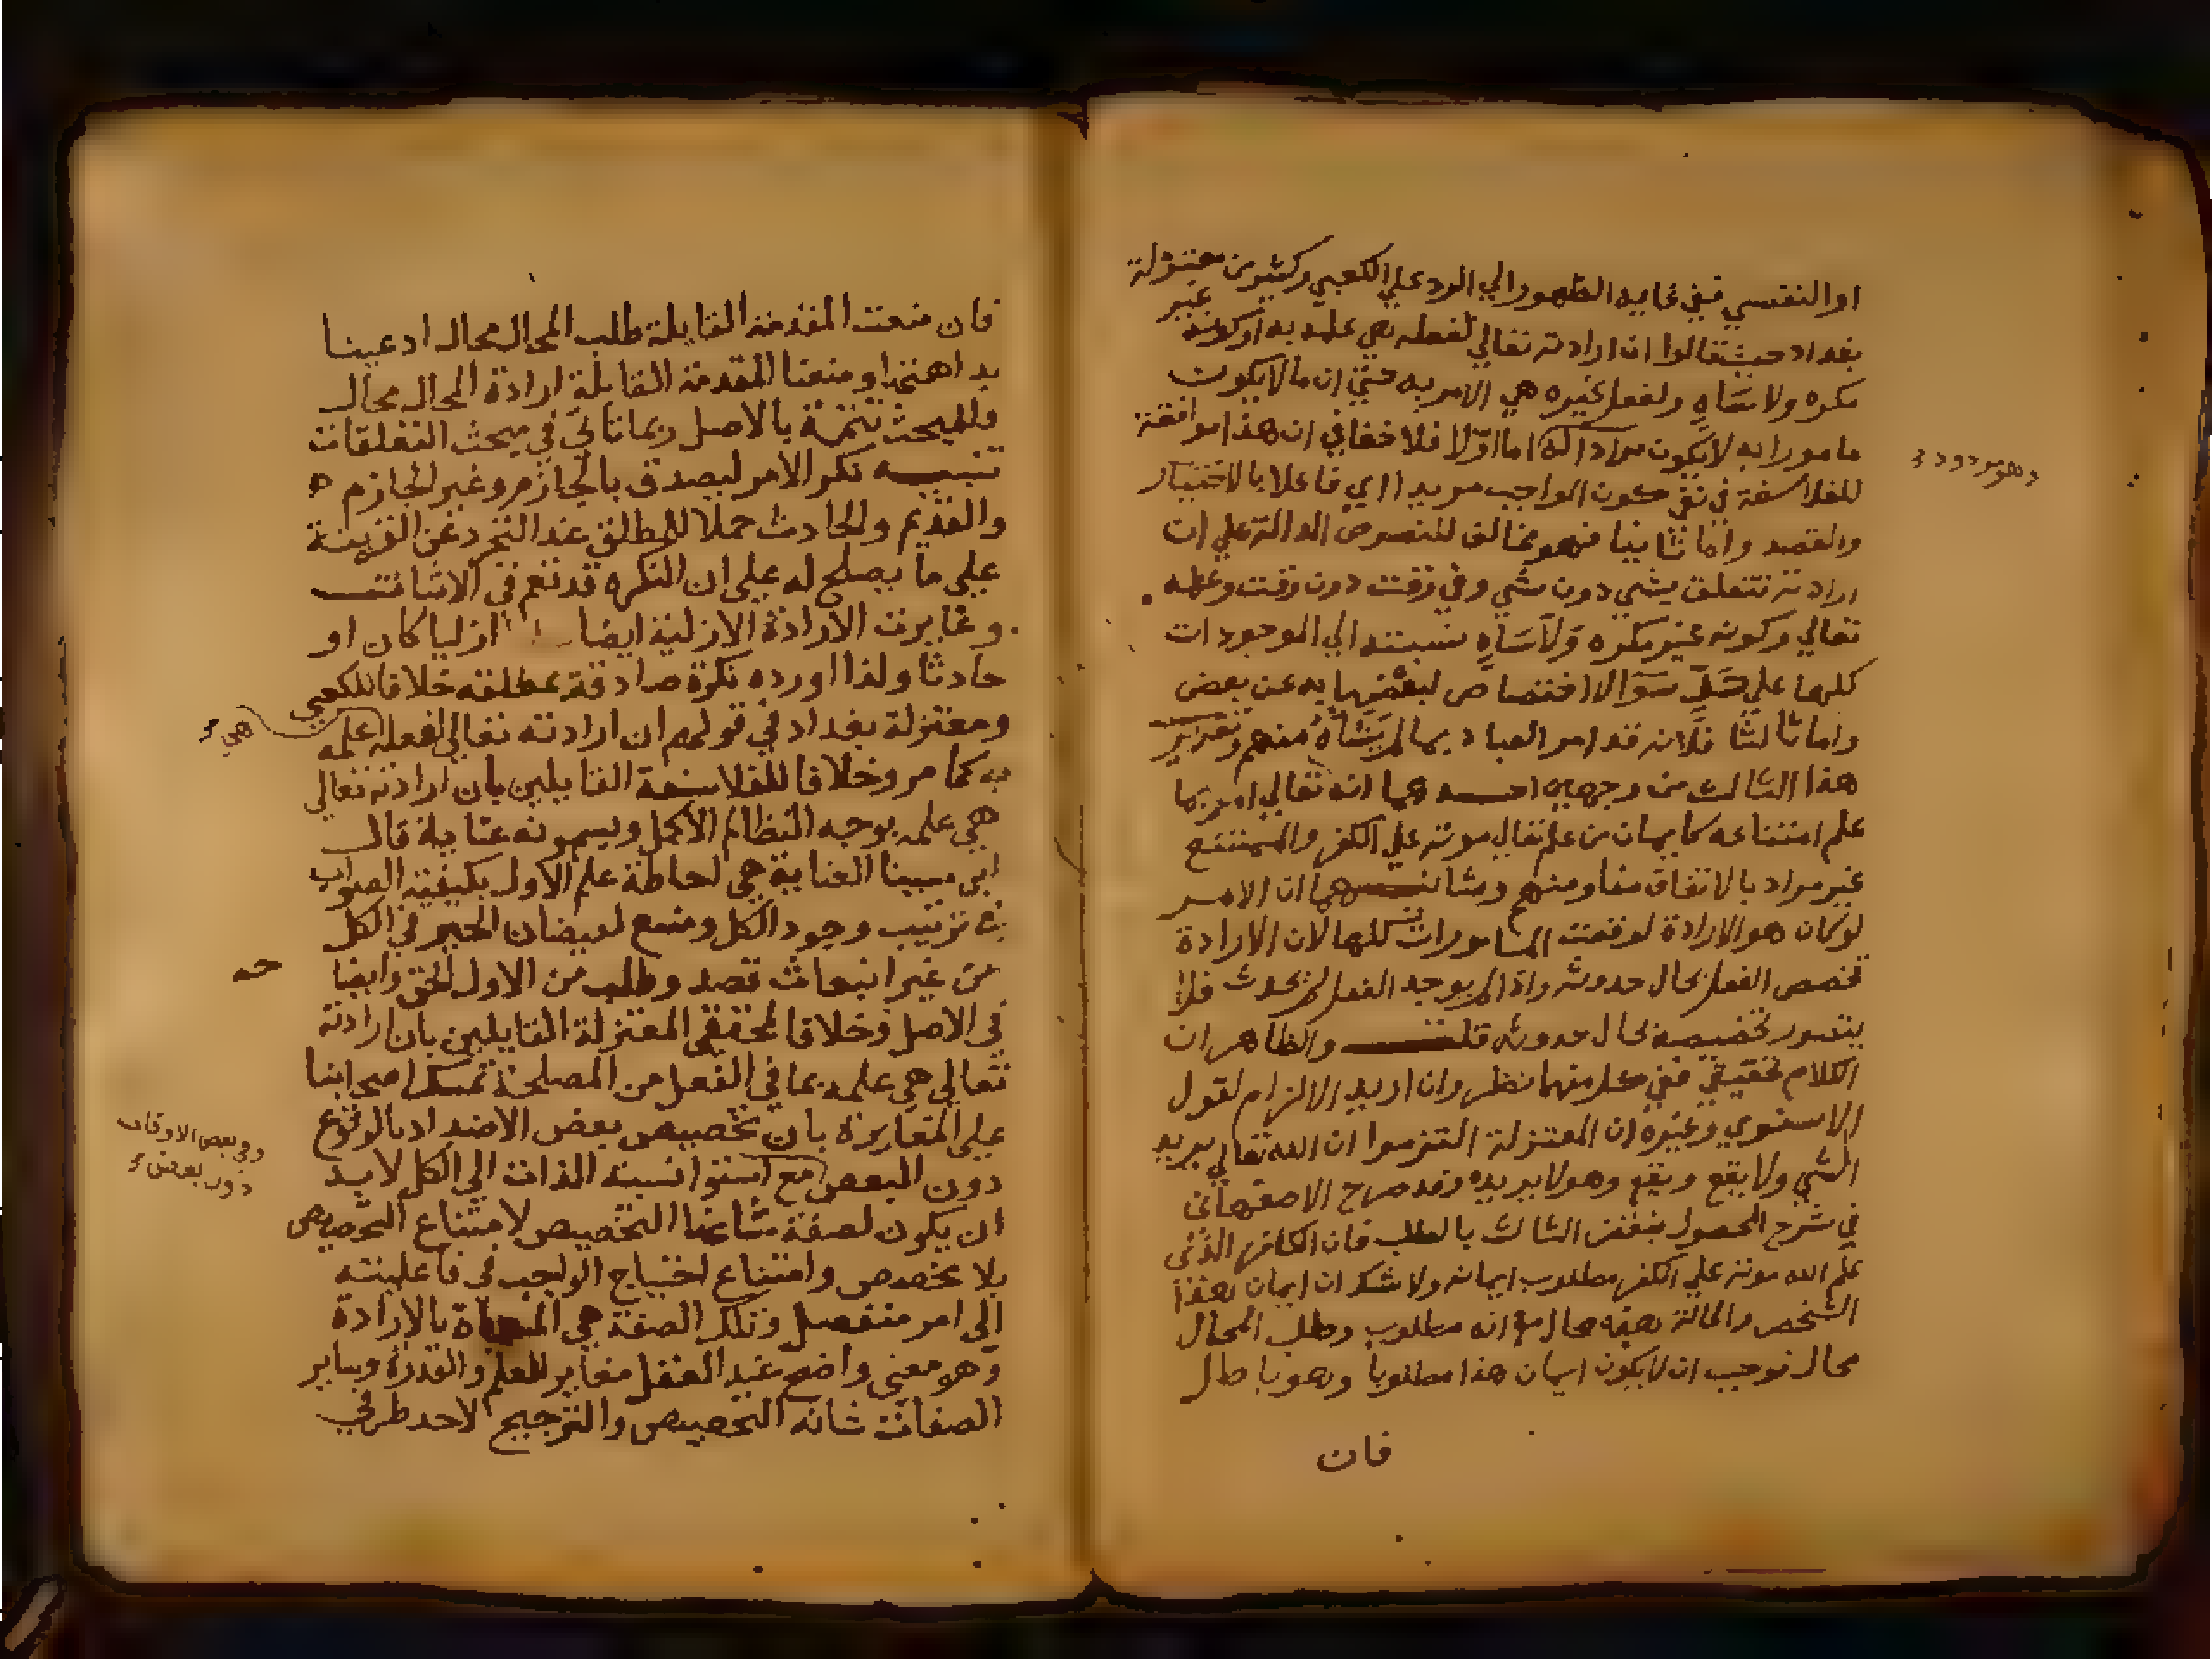 او النفسي ففي غايه الظهور الي الرد علي الكعبي وكثير من معتزلة
بغداد حيث قالوا ان ارادته تعالي لفعله هي علمه به او كونه غير
مكره ولا ساهٍ ولفعل غيره هي الامر به حتي ان ما لا يكون
مامورا به لا يكون مرادا له اما اوّلا فلا خفا في ان هذا موافقة
وهو مردود
للفلاسفة في نفي كون الواجب مريدا اي فاعلا بالاختيار
والقصد واما ثانيا فهو مخالف للنصوص الدالة علي ان
ارادته تتعلق بشي دون شي وفي وقت دون وقت وعلمه
تعالي وكونه غير مكره ولا ساهٍ نسبته الي الموجودات
كلها علي سوا لا اختصاص لبعضها به عن بعض
واما ثالثا فلانه قد امر العباد بما لم يشاه منهم وتقرير
هذا الثالث من وجهين احدهما انه تعالي امر بما
علم امتناعه كايمان من علم تعالي موته علي الكفر والممتنع
غير مراد بالاتفاق منا ومنهم وثانيهما ان الامر
لو كان هو الارادة لوقعت المامورات كلها لان الارادة
تخصص الفعل بحال حدوثه واذا لم يوجد الفعل لم يحدث فلا
يتصور تخصيصه بحال حدوثه قلت والظاهر ان
الكلام تحقيقي ففي كل منهما نظر وان اريد الالزام لقول
الاسنوي وغيره ان المعتزلة التزموا ان الله تعالي يريد
الشي ولا يقع ويقع وهو لا يريده وقد صرح الاصفهاني
في شرح المحصول بنقض الثالث بالطلب فان الكافر الذي
علم الله موته علي الكفر مطلوب ايمانه ولا شك ان ايمان هذا
الشخص والحالة هذه محال مع انه مطلوب وطلب المحال
محال فوجب ان لا يكون ايمان هذا مطلوبا وهو باطل
فان
فان منعت المقدمة القايلة طلب المحال محال ادعينا
بداهتها او منعنا المقدمة القايلة ارادة المحال محال
وللمبحث تتمة بالاصل ربما تاتي في مبحث التعلقات
تنبيه نكر الامر ليصدق بالجازم وغير الجازم
والقديم والحادث حملا للمطلق عند التجرد عن القرينة
علي ما يصلح له علي ان النكره قد تعم في الاثبات
وغايرت الارادة الازلية ايضا ازليا كان او
حادثا ولذا اورده نكرة صادقة بمطلقه خلافا للكعبي
ومعتزلة بغداد في قولهم ان ارادته تعالي لفعله علمه
هي
به كما مر وخلافا للفلاسفة القايلين بان ارادته تعالي
هي علمه بوجه النظام الاكمل ويسمونه عناية قال
ابن سينا العناية هي احاطة علم الاول بكيفية الصواب
في ترتيب وجود الكل ومنبع لفيضان الخير في الكل
من غير انبعاث قصد وطلب من الاول الحق وايضا
في الاصل وخلافا لمحققي المعتزلة القايلين بان ارادته
تعالي هي علمه بما في الفعل من المصلحة تمسك اصحابنا
علي المغايرة بان تخصيص بعض الاضداد بالوقوع
دون البعض مع استوا نسبة الذات الي الكل لا بد
وفي بعض الاوقات
دون بعض
ان يكون لصفة شانها التخصيص لامتناع التخصيص
بلا مخصص وامتناع احتياج الواجب في فاعليته
الي امر منفصل وتلك الصفة هي المسماة بالارادة
وهو معني واضح عند العقل مغاير للعلم والقدرة وساير
الصفات شانه التخصيص والترجيح لاحد طرفي